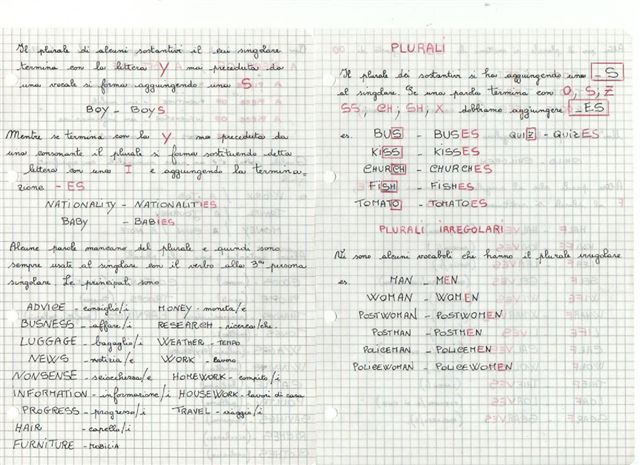 Il plurale di alcuni sostantivi il cui singolare
termina con la lettera Y ma preceduta da
una vocale si forma aggiungendo una S
BOY - BOYS
Mentre se termina con la Y ma preceduta da
una consonante il plurale si forma sostituendo detta
lettera con una I e aggiungendo la termina=
zione - ES
NATIONALITY - NATIONALITIES
BABY - BABIES
Alcune parole mancano del plurale e quindi sono
sempre usate al singolare con il verbo alla 3ª persona
singolare. Le principali sono
ADVICE - consiglio/i MONEY - moneta/e
BUSNESS - affare/i RESEARCH - ricerca/che
LUGGAGE - bagaglio/i WEATHER - TEMPO
NEWS - notizia/e WORK - lavoro
NONSENSE - sciocchezza/e HOMEWORK - compito/i
INFORMATION - informazione/i HOUSEWORK - lavori di casa
PROGRESS - progresso/i TRAVEL - viaggio/i
HAIR - capello/i
FURNITURE - MOBILIA
PLURALI
Il plurale dei sostantivi si ha aggiungendo una - S
al singolare. Se una parola termina con O, S, Z
SS, CH, SH, X dobbiamo aggiungere - ES
es. BUS - BUSES QUIZ - QUIZES
KISS - KISSES
CHURCH - CHURCHES
FISH - FISHES
TOMATO - TOMATOES
PLURALI IRREGOLARI
Vi sono alcuni vocaboli che hanno il plurale irregolare
es. MAN - MEN
WOMAN - WOMEN
POSTWOMAN - POSTWOMEN
POSTMAN - POSTMEN
POLICEMAN - POLICEMEN
POLICEWOMAN - POLICEWOMEN